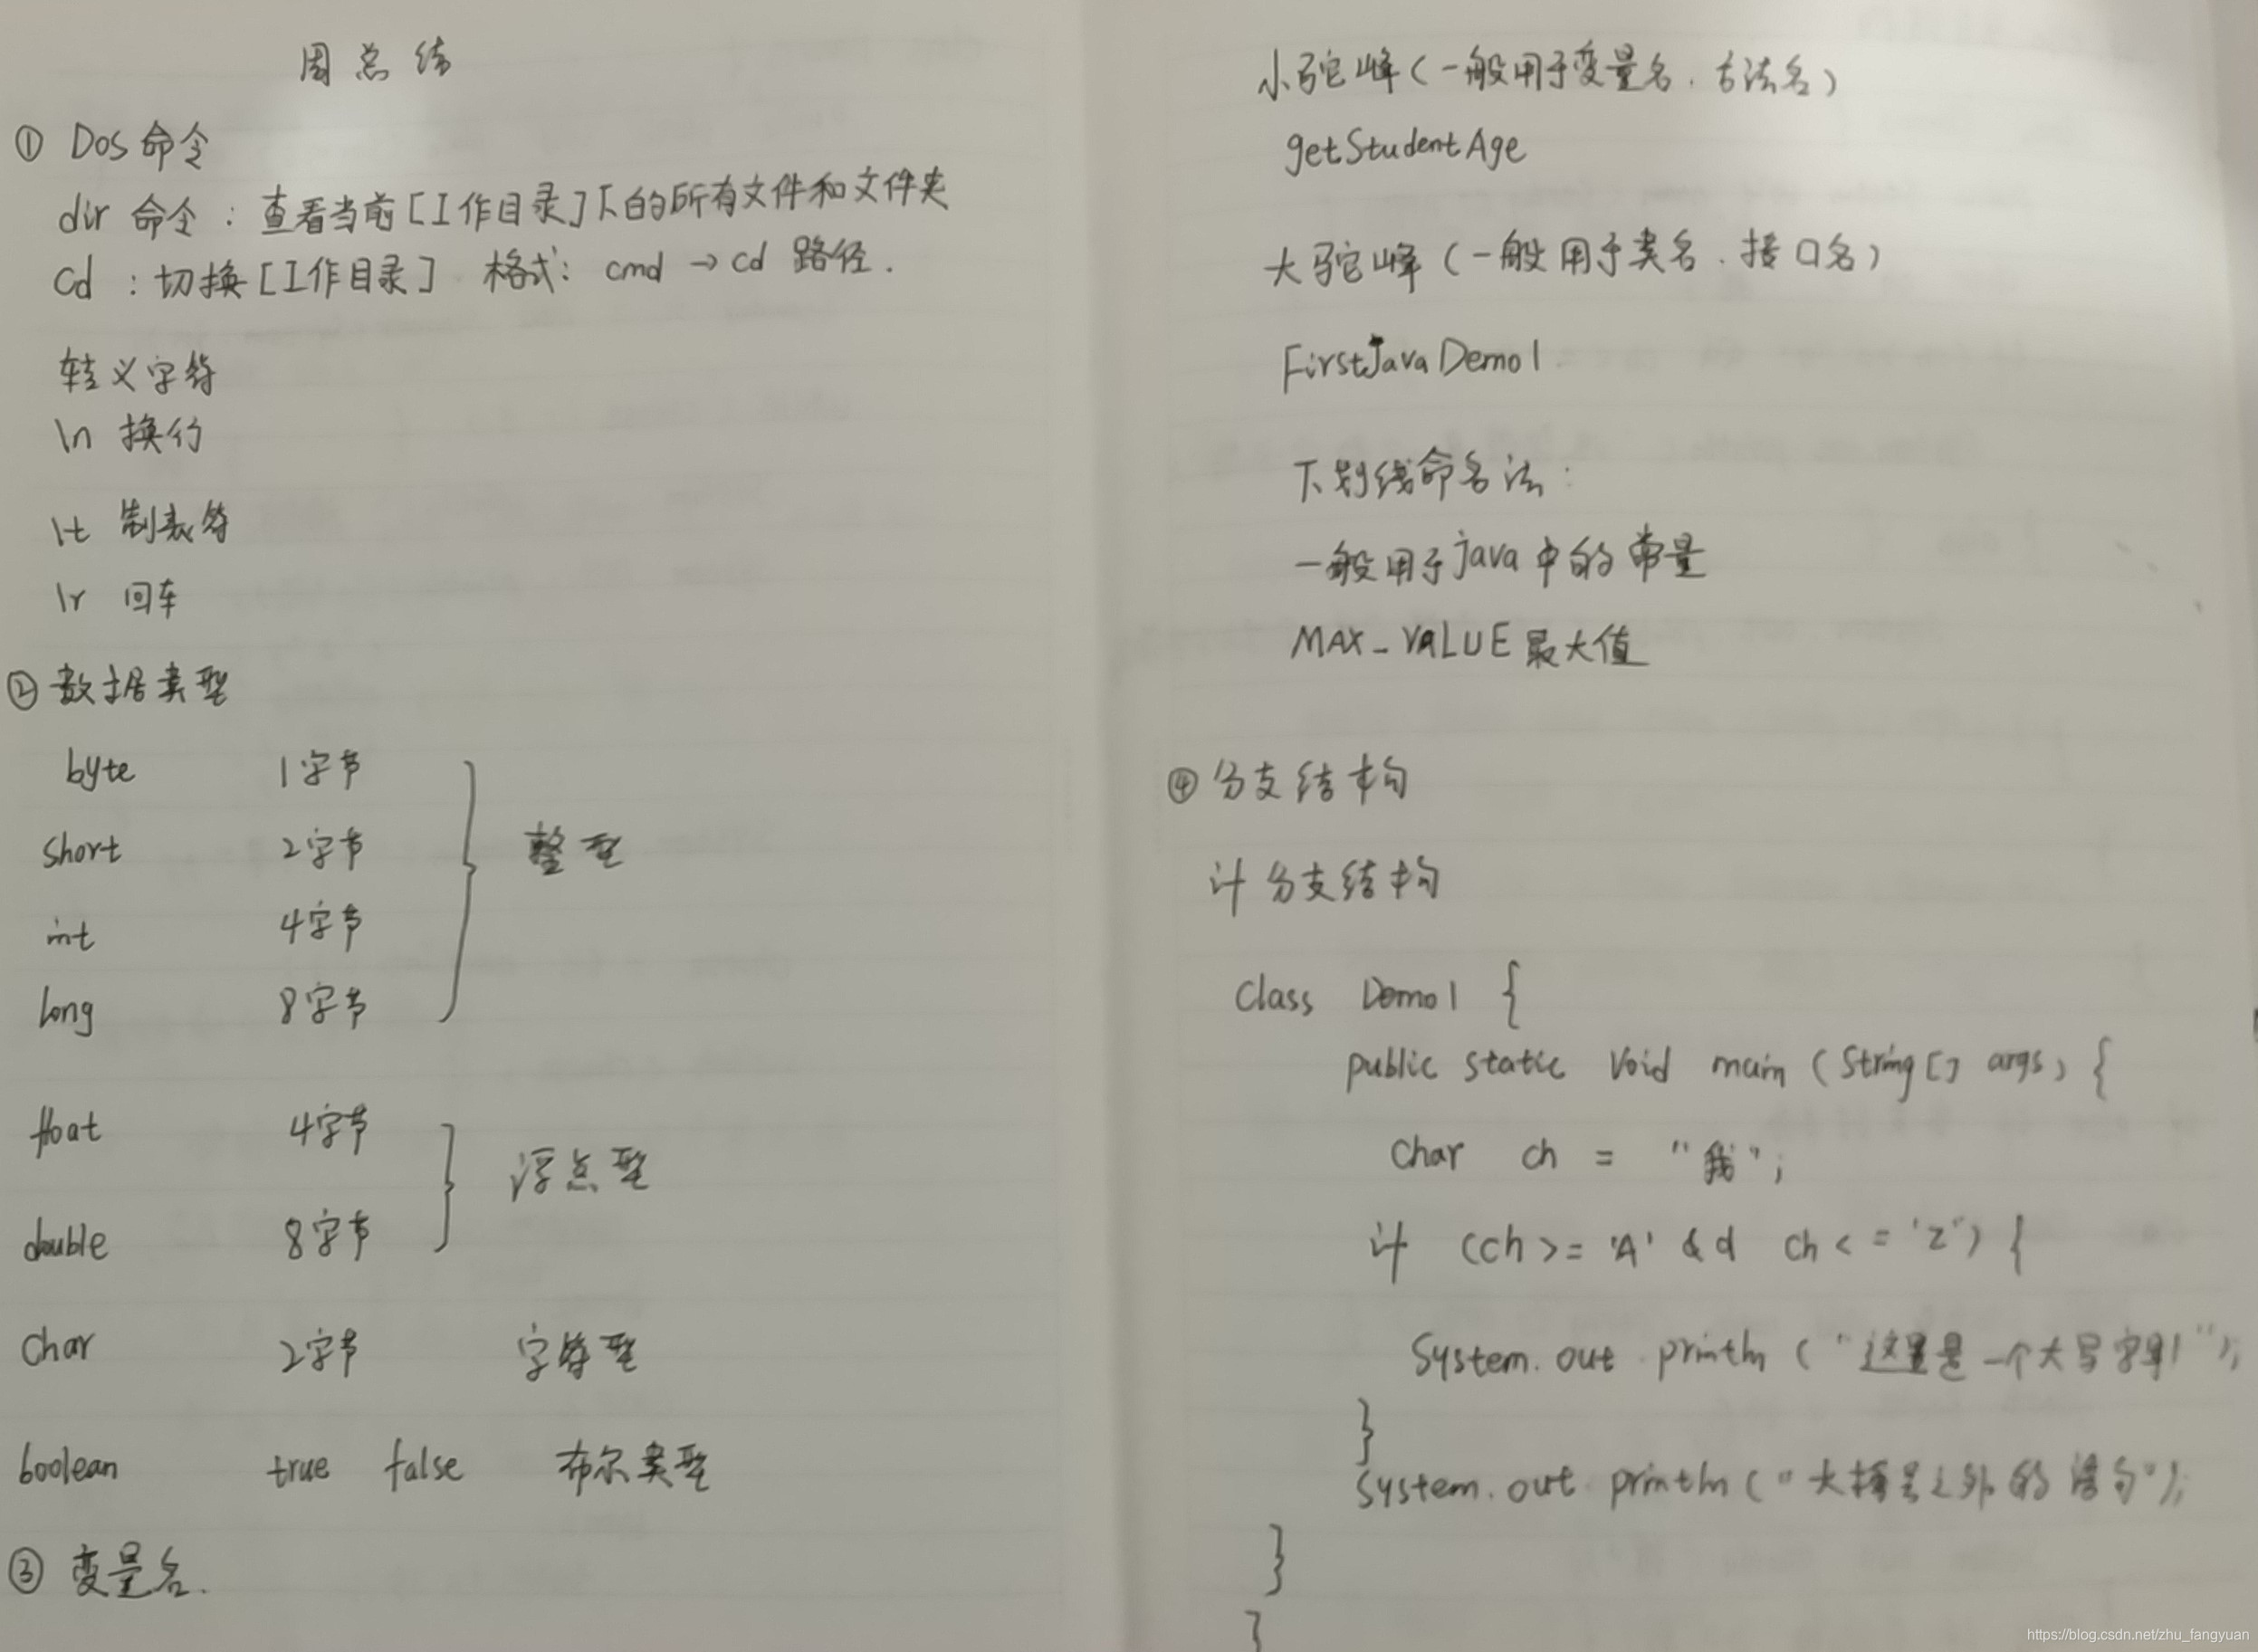 周总结
① Dos命令
dir 命令：查看当前[工作目录]下的所有文件和文件夹
cd ：切换[工作目录] 格式：cmd → cd 路径.
转义字符
\n 换行
\t 制表符
\r 回车
② 数据类型
byte 1字节
short 2字节
int 4字节
long 8字节
整型
float 4字节
double 8字节
浮点型
char 2字节 字符型
boolean true false 布尔类型
③ 变量名.
小驼峰(一般用于变量名、方法名)
getStudentAge
大驼峰(一般用于类名、接口名)
FirstJavaDemo1
下划线命名法：
一般用于java中的常量
MAX_VALUE 最大值
④ 分支结构
if 分支结构
class Demo1 {
public static void main (String[] args) {
char ch = "我";
if (ch >= 'A' && ch <= 'Z') {
System.out.println ("这里是一个大写字母!");
}
System.out.println ("大括号之外的语句");
}
}
https://blog.csdn.net/zhu_fangyuan